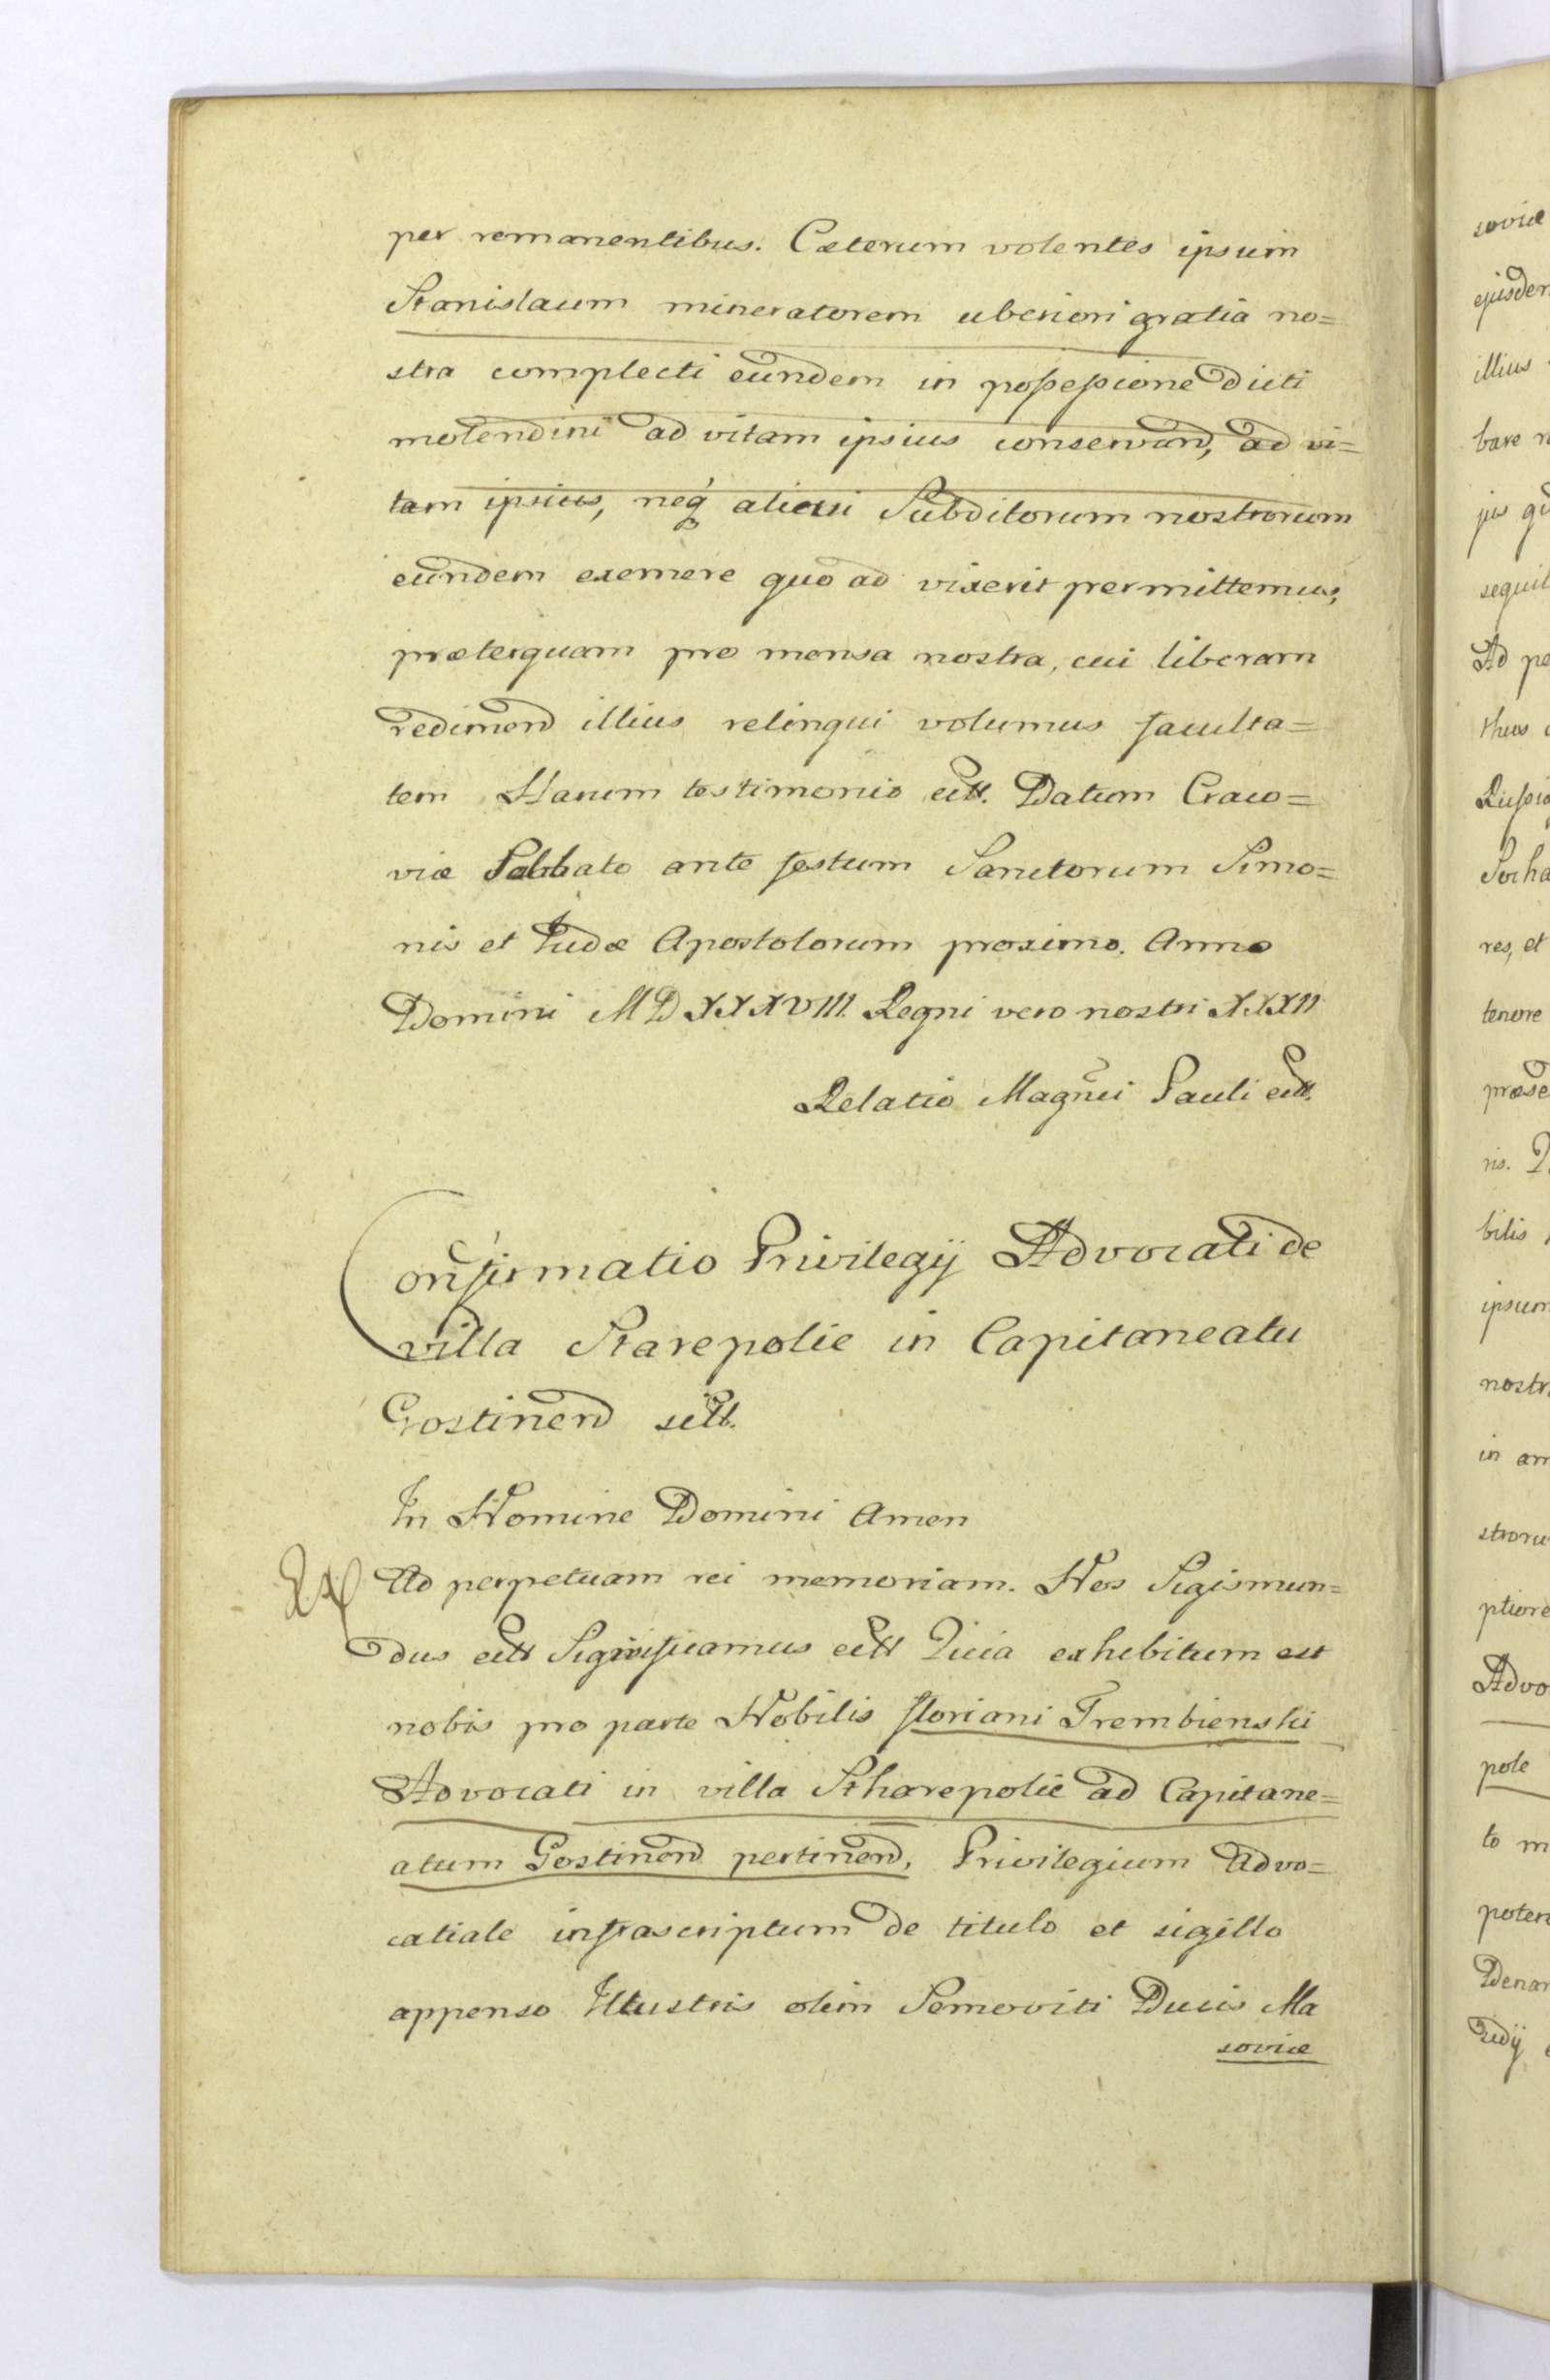 per remanentibus. Cæterum volentes ipsum
Stanislaum mineratorem uberiori gratia no=
stra complecti eundem in possessione dicti
molendini ad vitam ipsius conservand, ad vi=
tam ipsius, neq alicui Subditorum nostrorum
eundem exemere quo ad vixerit permittemus,
præterquam pro mensa nostra, cui liberam
redimend illius relinqui volumus faculta=
tem Harum testimonio ett. Datum Craco=
viæ Sabbato ante festum Sanctorum Simo=
nis et Judæ Apostolorum proximo. Anno
Domini MDXXXVIII. Regni vero nostri XXXII
Relatio Magnci Pauli ett.
Confirmatio Privilegij Advocati de
villa Starepolie in Capitaneatu
Gostinend sitt.
In Nomine Domini Amen
Ad perpetuam rei memoriam. Nos Sigismun=
dus ett Significamus ett Quia exhibitum est
nobis pro parte Nobilis floriani Trembienski
Advocati in villa Stharepolie ad Capitane=
atum Gostinend pertinend, Privilegium Advo=
catiale infrascriptum de titulo et sigillo
appenso Illustris olim Semoviti Ducis Ma
soviæ
soviæ
illius
bare
Ad
tenore
ris.
bilis
nostr
in
Advo
pole
to m